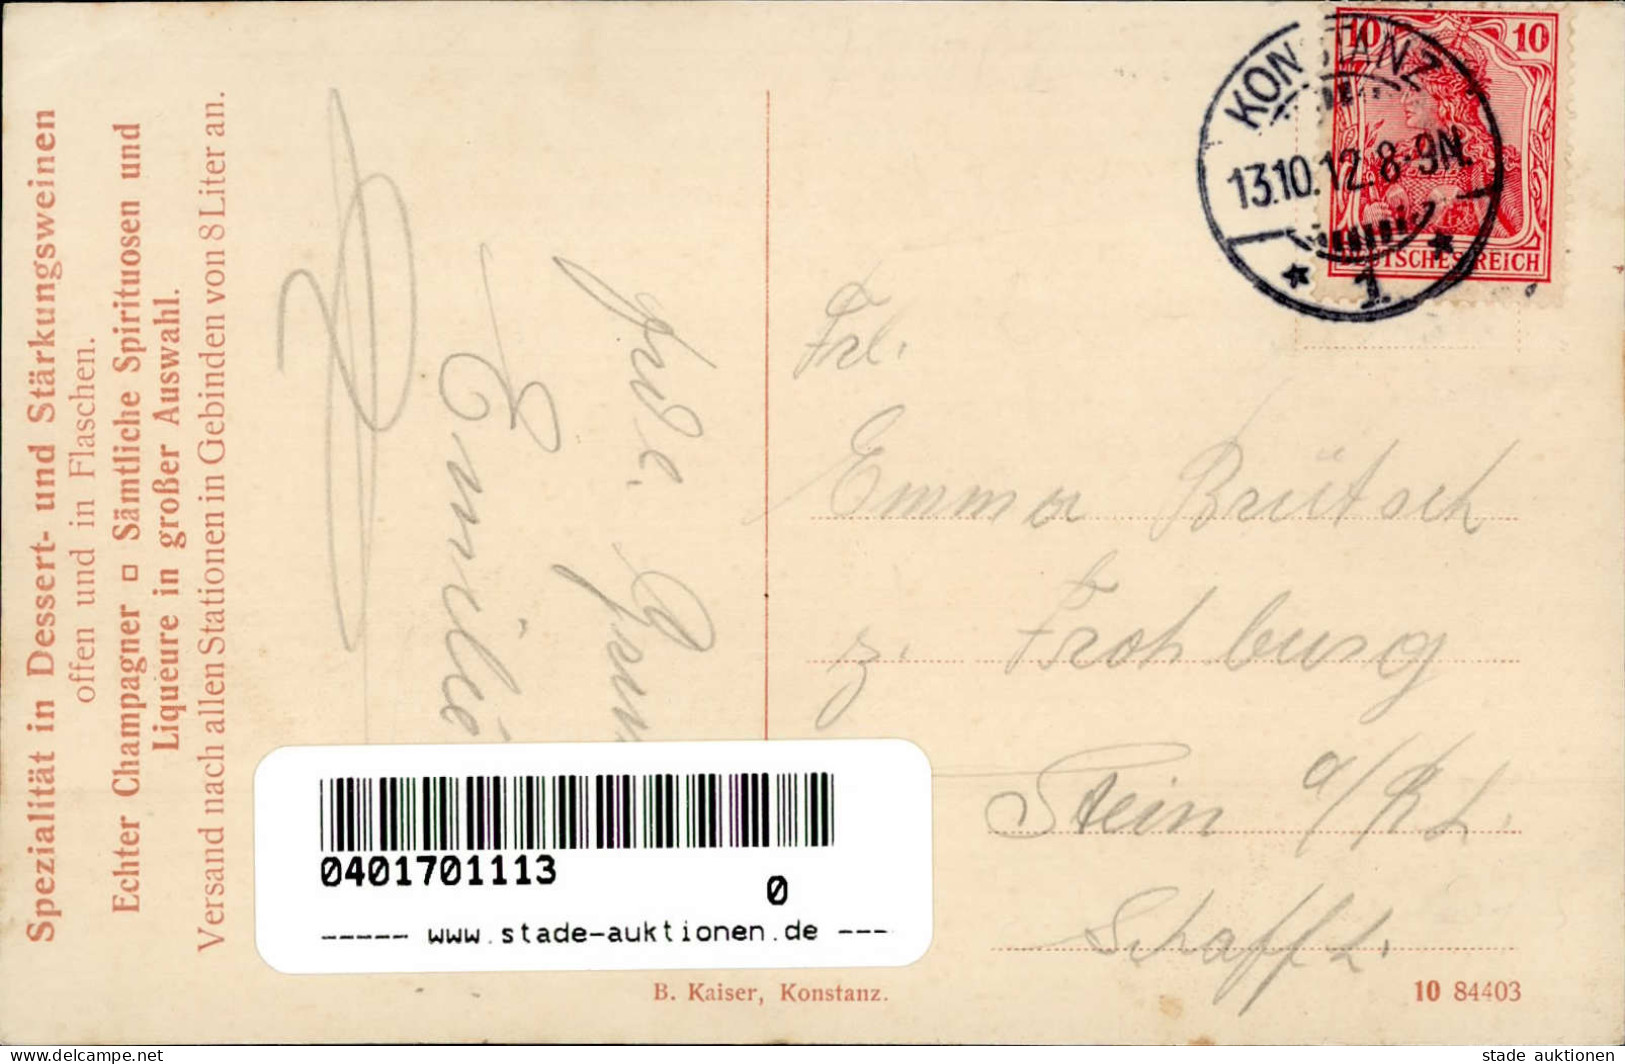 Spezialität in Dessert- und Stärkungsweinen
offen und in Flaschen.
Echter Champagner □ Sämtliche Spirituosen und
Liqueure in großer Auswahl.
Versand nach allen Stationen in Gebinden von 8 Liter an.
Emilie
10 10
DEUTSCHES REICH
KONSTANZ
13.10.12.8-9N.
* 1. *
Frl.
Emma Brütsch
z. Frohburg
Stein a/Rh.
Schaffh.
0401701113
0
----- www.stade-auktionen.de ---
B. Kaiser, Konstanz.
10 84403
stade auktionen